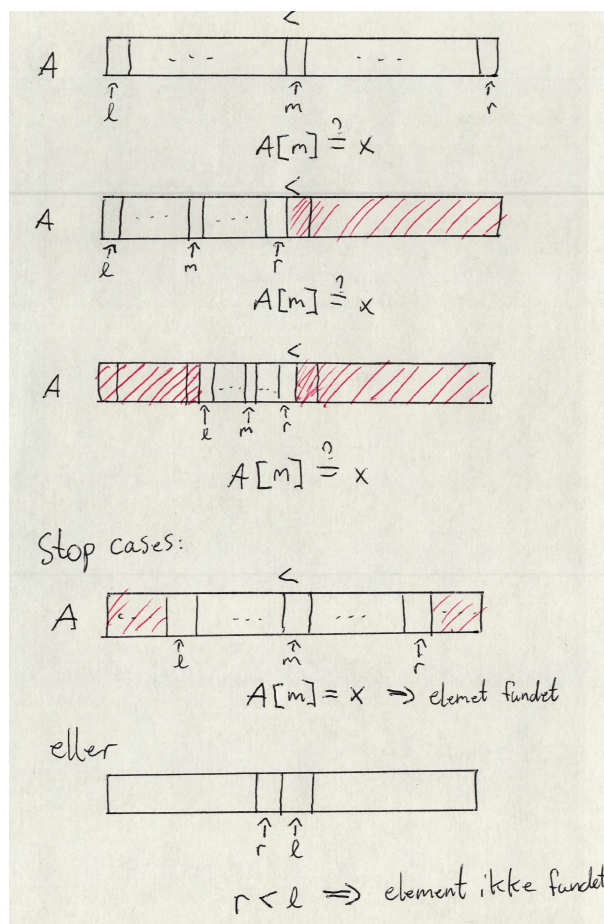 <
A - - - - - -
l m r
A[m] ≟ x
<
A - - - - - -
l m r
A[m] ≟ x
<
A - - - - - -
l m r
A[m] ≟ x
Stop cases:
<
A - - - - - - - - -
l m r
A[m] = x ⇒ elemet fundet
eller
r l
r < l ⇒ element ikke fundet